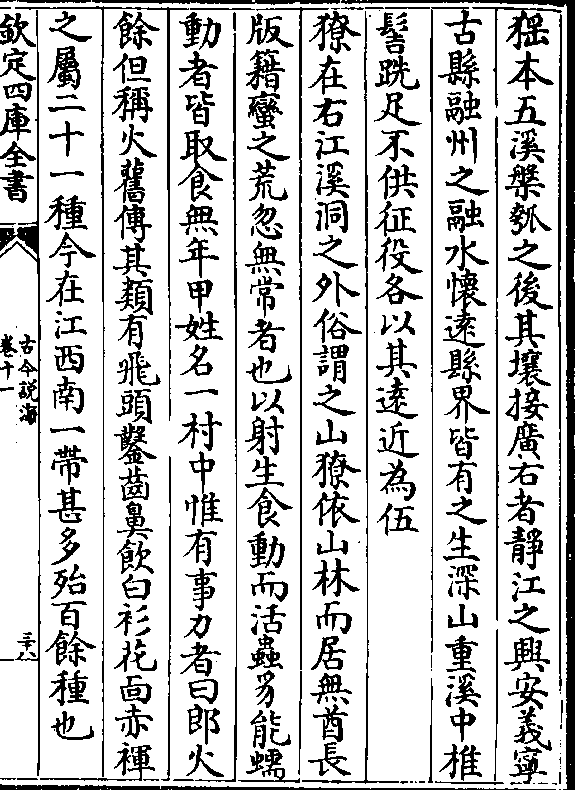 猺本五溪槃瓠之後其壤接廣右者靜江之興安義寧
古縣融州之融水懷逺縣界皆有之生深山重溪中椎
髻跣足不供征役各以其逺近為伍
獠在右江溪洞之外俗謂之山獠依山林而居無酋長
版籍蠻之荒忽無常者也以射生食動而活蟲豸能蠕
動者皆取食無年甲姓名一村中惟有事力者曰郎火
餘但稱火舊傳其類有飛頭鑿齒鼻飲白衫花面赤褌
之屬二十一種今在江西南一帶甚多殆百餘種也
欽定四庫全書
古今說海
卷十一
三十八